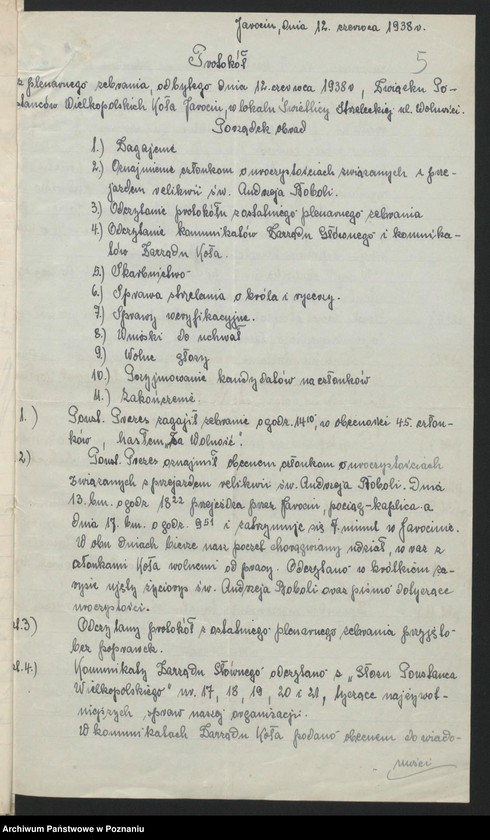 Jarocin, dnia 12. czerwca 1938 r.
5
Protokół
z plenarnego zebrania, odbytego dnia 12. czerwca 1938 r, Związku Po-
wstańców Wielkopolskich Koła Jarocin, w lokalu Świetlicy Strzeleckiej ul. Wolności.
Porządek obrad
1.) Zagajenie
2.) Oznajmienie członkom o uroczystościach związanych z prze-
jazdem relikwii św. Andrzeja Boboli.
3.) Odczytanie protokółu z ostatniego plenarnego zebrania
4.) Odczytanie komunikatów Zarządu Głównego i komunika-
tów Zarządu Koła.
5.) Skarbnictwo
6.) Sprawa strzelania o króla i rycerzy.
7.) Sprawy weryfikacyjne.
8.) Wnioski do uchwał
9.) Wolne głosy
10.) Przyjmowanie kandydatów na członków
11.) Zakończenie.
1.) Powst. Prezes zagajił zebranie o godz. 14¹⁰, w obecności 45. człon-
ków, hasłem „Za Wolność".
2) Powst. Prezes oznajmił obecnem członkom o uroczystościach
związanych z przejazdem relikwii św. Andrzeja Boboli. Dnia
13. bm. o godz 18²² przejeżdża przez Jarocin, pociąg-kaplica a
dnia 17. bm. o godz. 9⁵¹ i zatrzymuje się 7. minut w Jarocinie.
W obu dniach bierze nasz poczet chorągwiany udział, w raz z
członkami Koła wolnemi od pracy. Odczytano w krótkim za-
rysie ujęty życiorys św. Andrzeja Boboli oraz pismo dotyczące
uroczystości.
3) Odczytany protokół z ostatniego plenarnego zebrania przyjęto
bez poprawek.
4.) Komunikaty Zarządu Głównego odczytano z „Głosu Powstańca
Wielkopolskiego" nr. 17, 18, 19, 20 i 21, tyczące najżywot-
niejszych spraw naszej organizacji.
W komunikatach Zarządu Koła podano obecnem do wiado-
mości
Archiwum Państwowe w Poznaniu